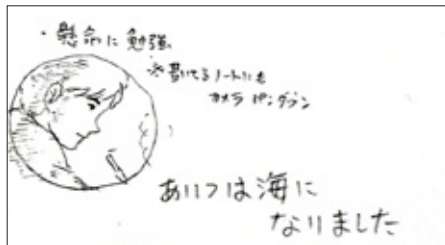 ・懸命に勉強
※書いてるノートにも
カメラ パングラン
あいつは海に
なりました